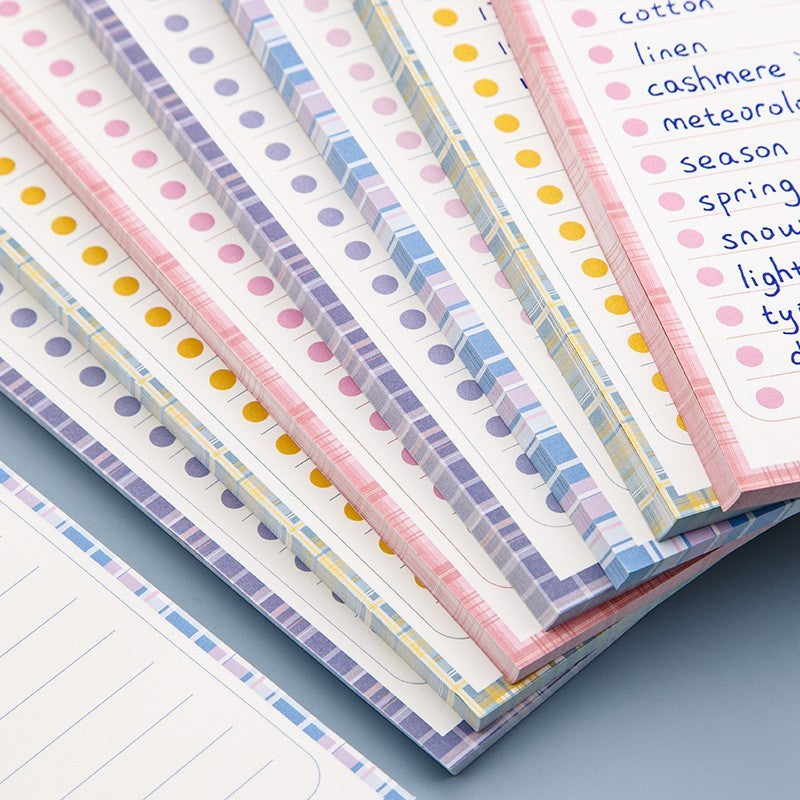 cotton
linen
cashmere
season
spring
snow
light